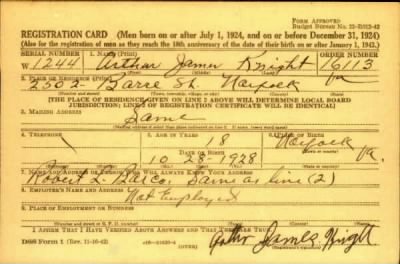 FORM APPROVED
REGISTRATION CARD (Men born on or after July 1, 1924, and on or before December 31, 1924)
(Also for the registration of men as they reach the 18th anniversary of the date of their birth on or after January 1, 1943.)
SERIAL NUMBER 1. NAME (Print) ORDER NUMBER
W 1244 Arthur James Knight
2. PLACE OF RESIDENCE (Print)
Norfolk Va
[THE PLACE OF RESIDENCE GIVEN ON LINE 2 ABOVE WILL DETERMINE LOCAL BOARD
JURISDICTION; LINE 2 OF REGISTRATION CERTIFICATE WILL BE IDENTICAL]
3. MAILING ADDRESS
Same
4. TELEPHONE 5. AGE IN YEARS 6. PLACE OF BIRTH
18 Norfolk
DATE OF BIRTH
10 28 1928 Va.
7. NAME AND ADDRESS OF PERSON WHO WILL ALWAYS KNOW YOUR ADDRESS
Robert L. Same as line (2)
8. EMPLOYER'S NAME AND ADDRESS
Not Employed
9. PLACE OF EMPLOYMENT OR BUSINESS
I AFFIRM THAT I HAVE VERIFIED ABOVE ANSWERS AND THAT THEY ARE TRUE.
DSS Form 1 (Rev. 11-16-42) (OVER) James Knight